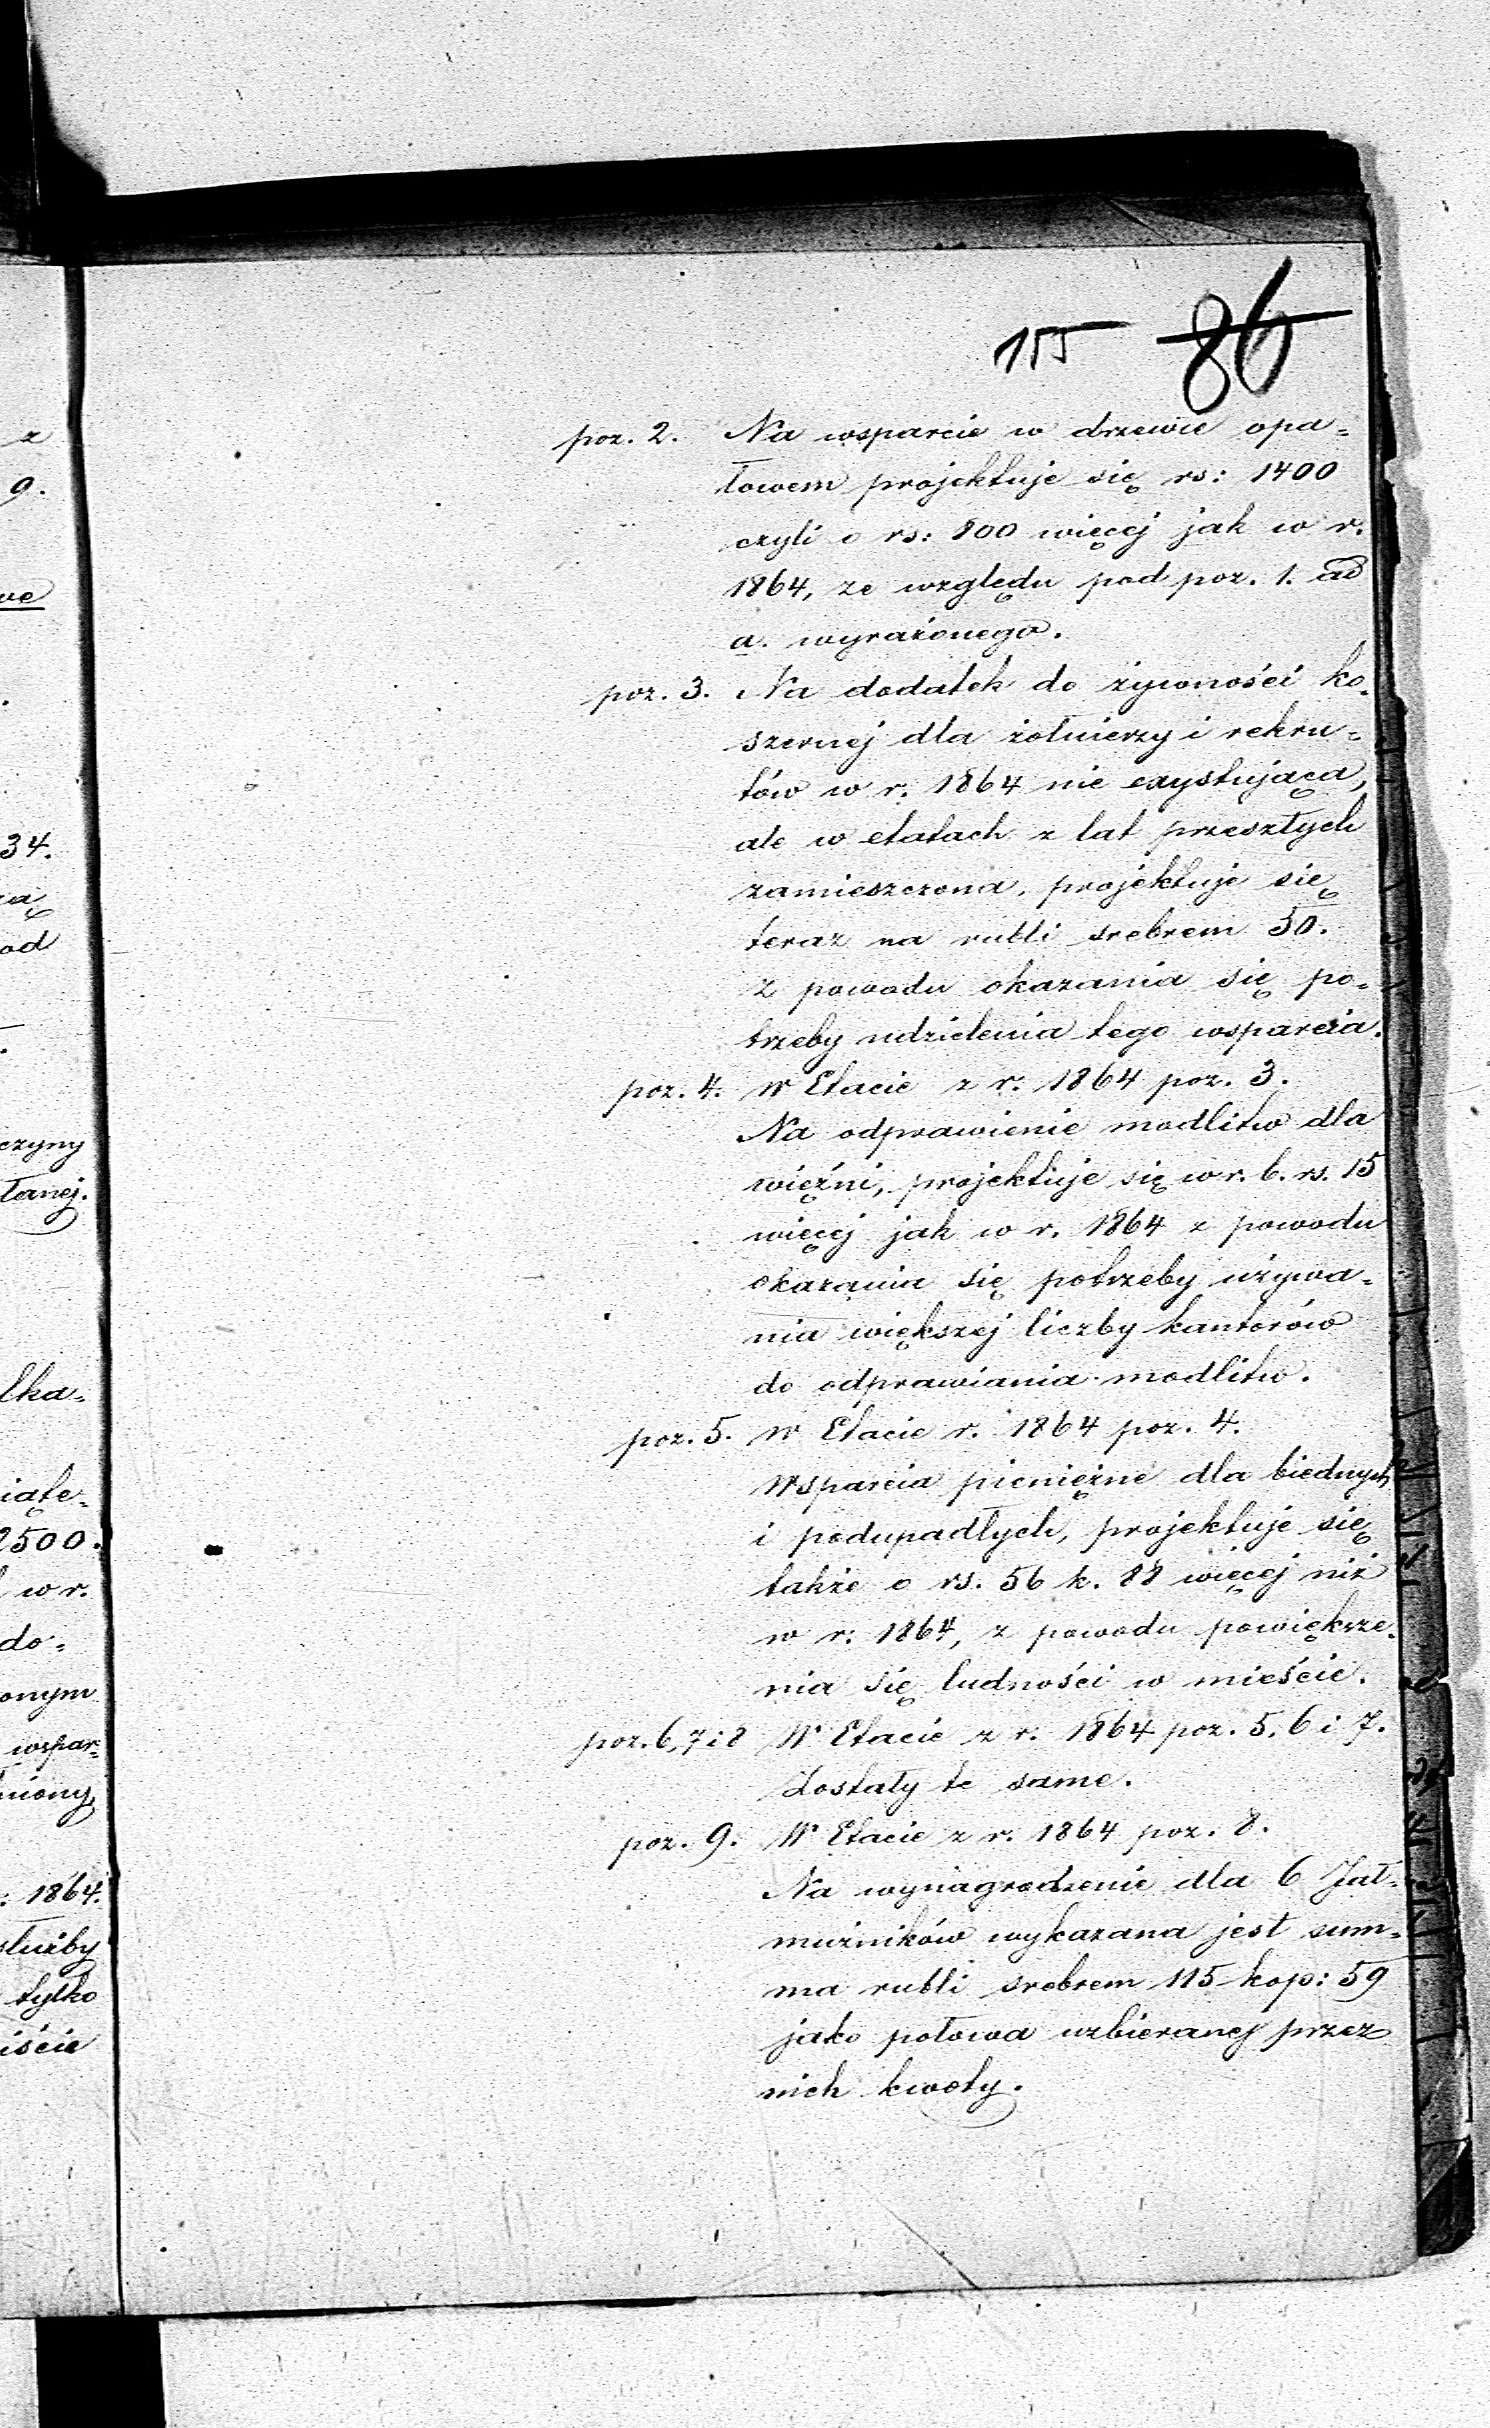 155 86
poz. 2. Na wsparcie w drzewie opa=
łowem projektuje się rs: 1400
czyli o rs: 800 więcej jak w r.
1864, ze względu pod poz. 1. ad
a. wyrażonego.
poz. 3. Na dodatek do żywności ko=
szernej dla żołnierzy i rekru=
tów w r. 1864 nie exystująca,
ale w etatach z lat przeszłych
zamieszczona, projektuje się
teraz na rubli srebrem 50.
z powodu okazania się po=
trzeby udzielenia tego wsparcia.
poz. 4. W Etacie z r. 1864 poz. 3.
Na odprawienie modlitw dla
więźni, projektuje się w r. b. rs. 15
więcej jak w r. 1864 z powodu
okazania się potrzeby używa=
nia większej liczby kantorów
do odprawiania modlitw.
poz. 5. W Etacie r. 1864 poz. 4.
Wsparcia pieniężne dla biednych
i podupadłych, projektuje się
także o rs. 56 k. 88 więcej niż
w r. 1864, z powodu powiększe=
nia się ludności w mieście.
poz. 6, 7 i 8 W Etacie z r. 1864 poz. 5, 6 i 7.
zostały te same.
poz. 9. W Etacie z r. 1864 poz. 8.
Na wynagrodzenie dla 6 Jał=
mużników wykazana jest sum=
ma rubli srebrem 115 kop: 59
jako połowa uzbieranej przez
nich kwoty.
z
9.
34.
od
czyny
łanej.
2500.
w r.
do=
onym
wspar=
: 1864.
służby
tylko